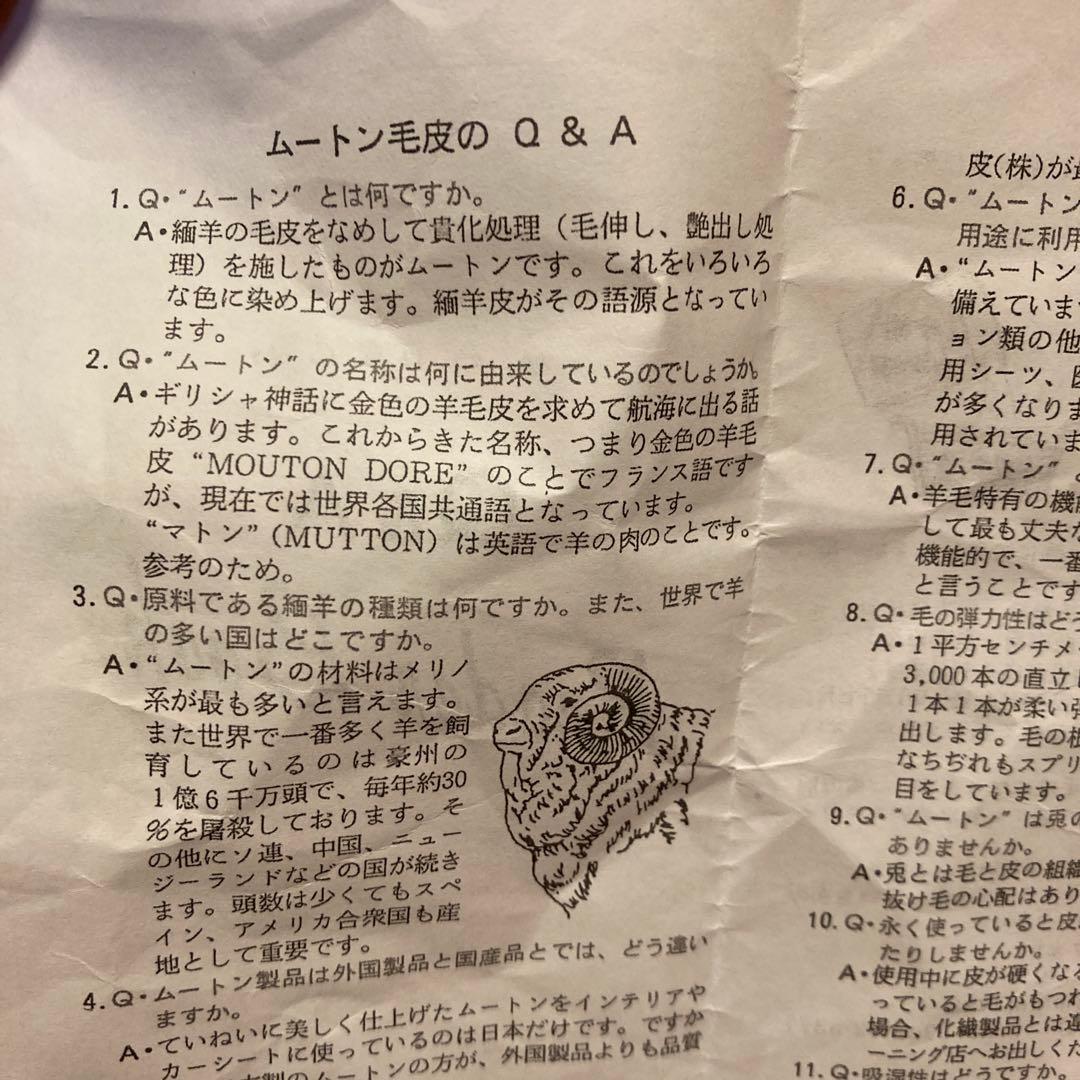 ムートン毛皮の Q & A
1. Q・“ムートン” とは何ですか。
A・緬羊の毛皮をなめして貴化処理（毛伸し、艶出し処
理）を施したものがムートンです。これをいろいろ
な色に染め上げます。緬羊皮がその語源となってい
ます。
2. Q・“ムートン” の名称は何に由来しているのでしょうか。
A・ギリシャ神話に金色の羊毛皮を求めて航海に出る話
があります。これからきた名称、つまり金色の羊毛
皮 “MOUTON DORE” のことでフランス語です
が、現在では世界各国共通語となっています。
“マトン”（MUTTON）は英語で羊の肉のことです。
参考のため。
3. Q・原料である緬羊の種類は何ですか。また、世界で羊
の多い国はどこですか。
A・“ムートン”の材料はメリノ
系が最も多いと言えます。
また世界で一番多く羊を飼
育しているのは豪州の
1億6千万頭で、毎年約30
％を屠殺しております。そ
の他にソ連、中国、ニュー
ジーランドなどの国が続き
ます。頭数は少くてもスペ
イン、アメリカ合衆国も産
地として重要です。
4. Q・ムートン製品は外国製品と国産品とでは、どう違い
ますか。
A・ていねいに美しく仕上げたムートンをインテリアや
カーシートに使っているのは日本だけです。ですか
製のムートンの方が、外国製品よりも品質
皮(株)が
6. Q・“ムートン
用途に利用
A・“ムートン
備えていま
ョン類の他
用シーツ、
が多くなりま
用されていま
7. Q・“ムートン”
A・羊毛特有の機能
して最も丈夫な
機能的で、一番
と言うことです
8. Q・毛の弾力性はどう
A・1平方センチメ
3,000本の直立
1本1本が柔い
出します。毛の根
なちぢれもスプリ
目をしています。
9. Q・“ムートン”は兎の
ありませんか。
A・兎とは毛と皮の組織
抜け毛の心配はあり
10. Q・永く使っていると皮
たりしませんか。
A・使用中に皮が硬くなる
っていると毛がもつれ
場合、化繊製品とは違
ーニング店へお出しくだ
11. Q・吸湿性はどうですか。